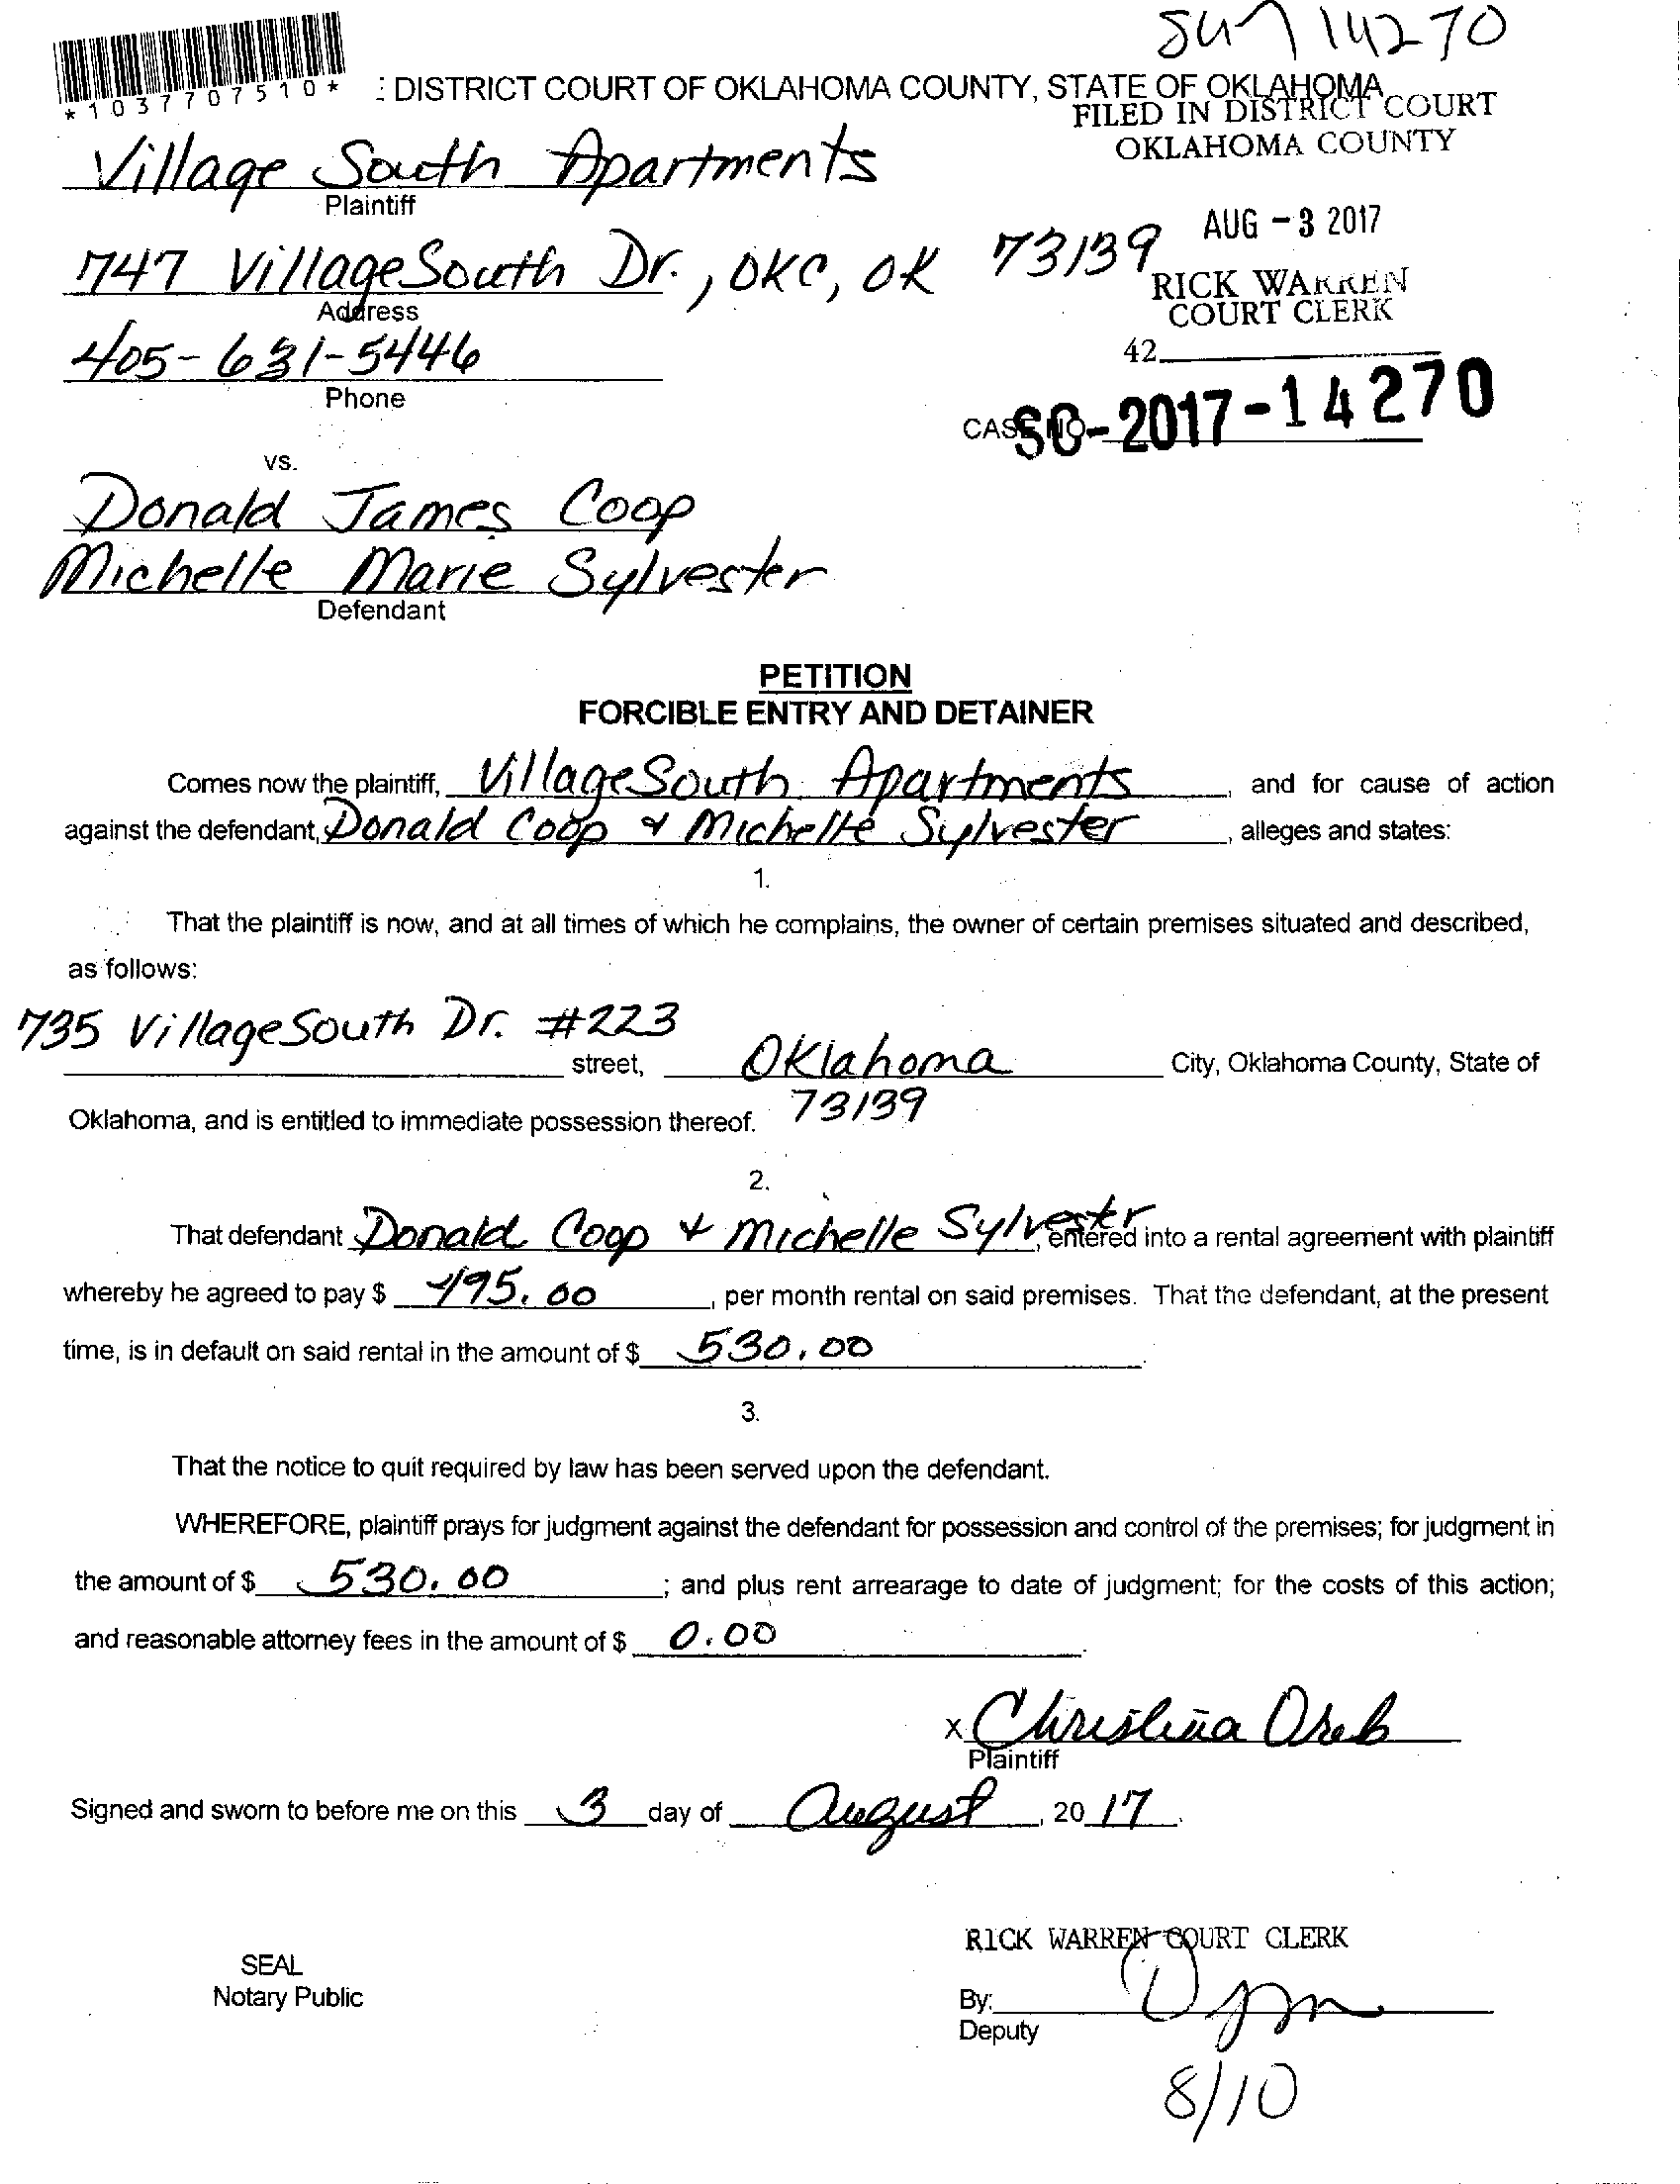 14270
*1037707510*
: DISTRICT COURT OF OKLAHOMA COUNTY, STATE OF OKLAHOMA
FILED IN DISTRICT COURT
OKLAHOMA COUNTY
Village South Apartments
Plaintiff
AUG -3 2017
747 Village South Dr., OKC, OK 73139
Address
RICK WARREN
COURT CLERK
405-631-5446
Phone
42
CASE NO SC-2017-14270
vs.
Donald James Coop
Michelle Marie Sylvester
Defendant
PETITION
FORCIBLE ENTRY AND DETAINER
Comes now the plaintiff, Village South Apartments, and for cause of action
against the defendant, Donald Coop & Michelle Sylvester, alleges and states:
1.
That the plaintiff is now, and at all times of which he complains, the owner of certain premises situated and described,
as follows:
735 Village South Dr. #223
street, Oklahoma City, Oklahoma County, State of
Oklahoma, and is entitled to immediate possession thereof. 73139
2.
That defendant Donald Coop & Michelle Sylvester, entered into a rental agreement with plaintiff
whereby he agreed to pay $ 495.00, per month rental on said premises. That the defendant, at the present
time, is in default on said rental in the amount of $ 530.00.
3.
That the notice to quit required by law has been served upon the defendant.
WHEREFORE, plaintiff prays for judgment against the defendant for possession and control of the premises; for judgment in
the amount of $ 530.00; and plus rent arrearage to date of judgment; for the costs of this action;
and reasonable attorney fees in the amount of $ 0.00.
x Christina
Plaintiff
Signed and sworn to before me on this 3 day of August, 20 17.
RICK WARREN COURT CLERK
SEAL
Notary Public
By:
Deputy
8/10